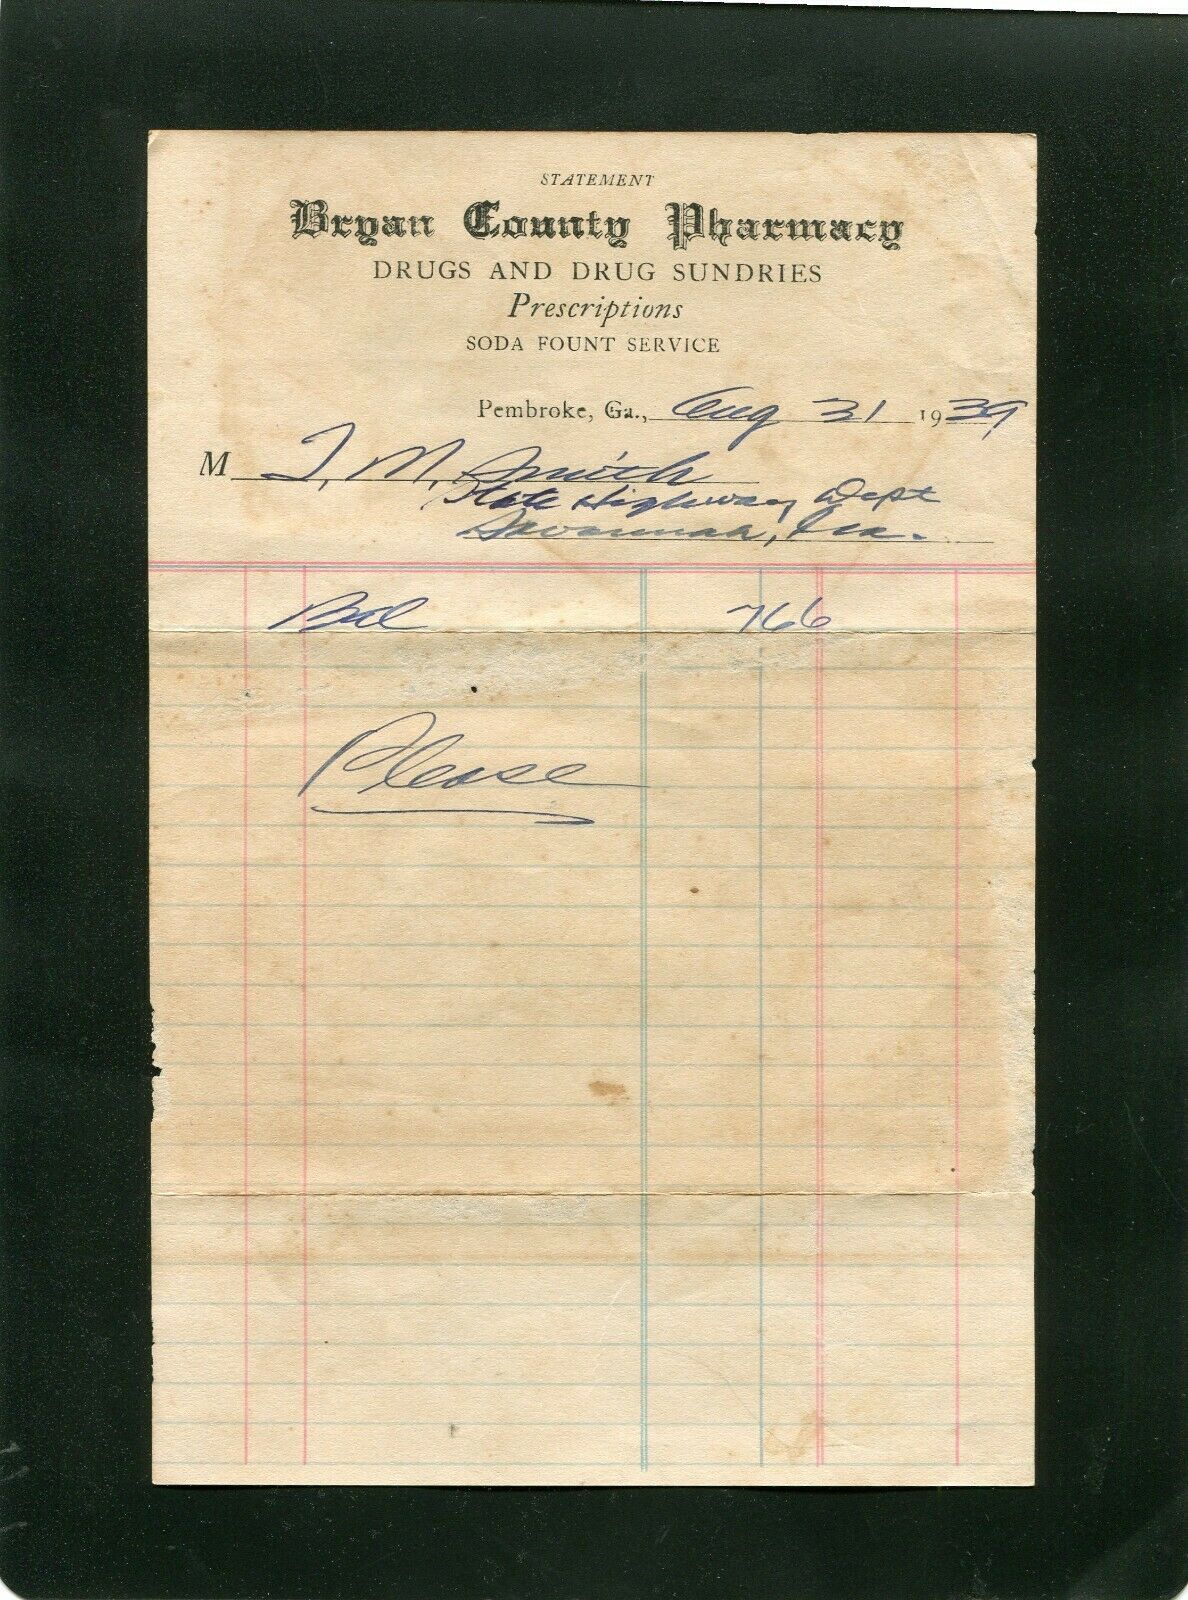 STATEMENT
Bryan County Pharmacy
DRUGS AND DRUG SUNDRIES
Prescriptions
SODA FOUNT SERVICE
Pembroke, Ga., Aug 31 1939
M J. M. Smith
State Highway Dept
Savannah, Ga.
Bal 766
Please